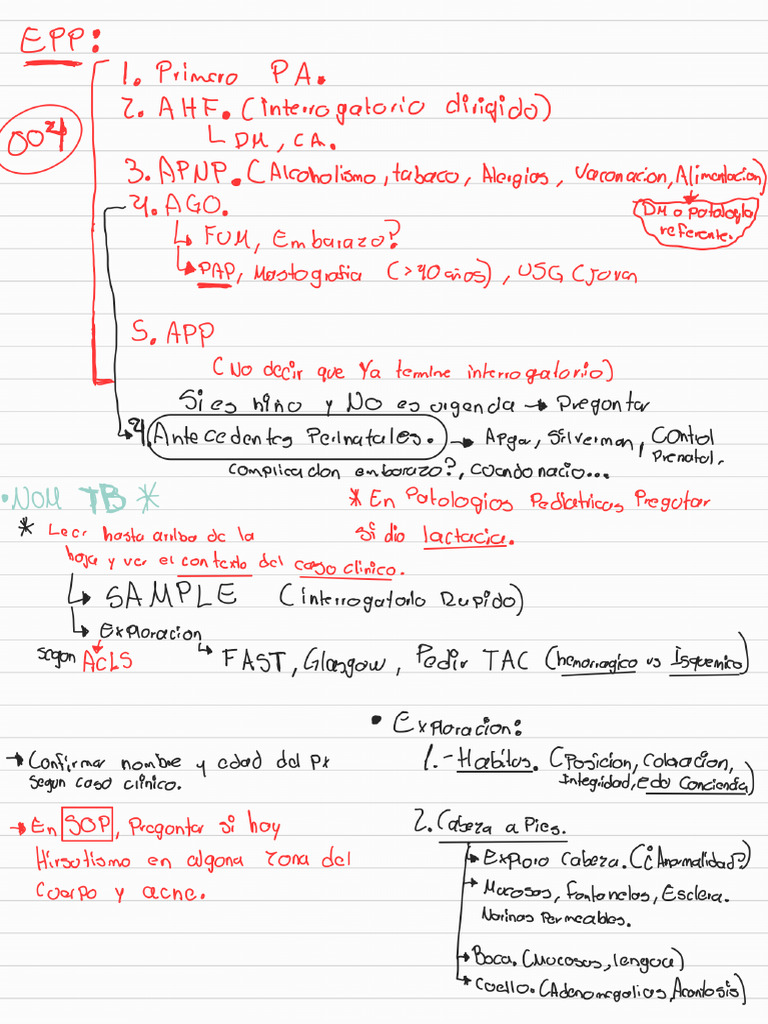 EPP:
1. Primero PA.
2. AHF. (interrogatorio dirigido)
DM, CA.
004
3. APNP. (Alcoholismo, tabaco, Alergias, Vacunacion, Alimentacion)
DM o patologia
referente.
4. AGO.
FUM, Embarazo?
PAP, Mastografia (>40 años), USG (joven
5. APP
(No decir que Ya termine interrogatorio)
Si es niño y No es urgencia → Preguntar
4. Antecedentes Perinatales. → Apgar, Silverman, Control
Prenatal.
complicacion embarazo?, cuando nacio...
• NOM TB *
* En Patologias Pediatricas Pregutar
si dio lactacia.
* Leer hasta arriba de la
hoja y ver el contexto del caso clinico.
SAMPLE (interrogatorio Rapido)
Exploracion
segun ACLS
FAST, Glasgow, Pedir TAC (hemorragico vs Isquemico)
→ Confirmar nombre y edad del Px
segun caso clinico.
→ En SOP, Preguntar si hay
Hirsutismo en alguna zona del
cuerpo y acne.
• Exploracion:
1.- Habitus. (Posicion, Coloracion,
Integridad, edo Conciencia)
2. Cabeza a Pies.
Exploro cabeza. (¿Anormalidad?)
Mucosas, fontanelas, Esclera.
Narinas Permeables.
Boca. (Mucosas, lengua)
Cuello. (Adenomegalias, Acantosis)